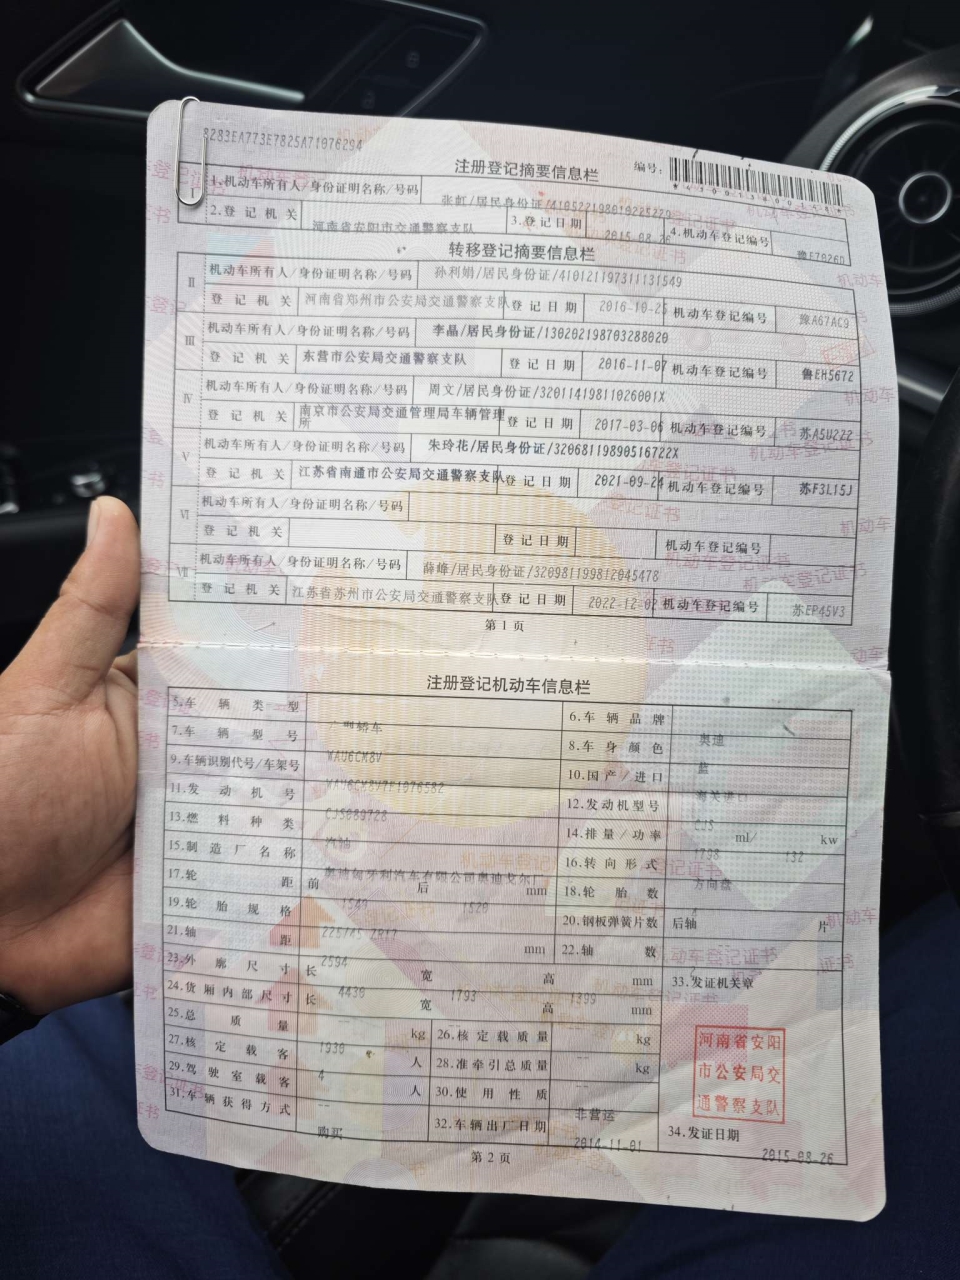 8283EA773E7825A71076294
注册登记摘要信息栏 编号:
1.机动车所有人/身份证明名称/号码 张虹/居民身份证/410522198019225229
2.登记机关 河南省安阳市公安局交通警察支队 3.登记日期 2015-08-26 4.机动车登记编号 豫E7926D
转移登记摘要信息栏
II 机动车所有人/身份证明名称/号码 孙利娟/居民身份证/410121197311131549
登记机关 河南省郑州市公安局交通警察支队 登记日期 2016-10-25 机动车登记编号 豫A67AC9
III 机动车所有人/身份证明名称/号码 李晶/居民身份证/130202198703288020
登记机关 东营市公安局交通警察支队 登记日期 2016-11-07 机动车登记编号 鲁EH5672
IV 机动车所有人/身份证明名称/号码 周文/居民身份证/32011419811026001X
登记机关 南京市公安局交通管理局车辆管理所 登记日期 2017-03-06 机动车登记编号 苏A5U2Z2
V 机动车所有人/身份证明名称/号码 朱玲花/居民身份证/32068119890516722X
登记机关 江苏省南通市公安局交通警察支队 登记日期 2021-09-24 机动车登记编号 苏F3L15J
VI 机动车所有人/身份证明名称/号码
登记机关 登记日期 机动车登记编号
VII 机动车所有人/身份证明名称/号码 薛峰/居民身份证/320981199812045478
登记机关 江苏省苏州市公安局交通警察支队 登记日期 2022-12-02 机动车登记编号 苏EP45V3
第1页
注册登记机动车信息栏
5.车辆类型 小型轿车 6.车辆品牌 奥迪
7.车辆型号 WAU6CM8V 8.车身颜色 蓝
9.车辆识别代号/车架号 WAU6CM8V7F1076582 10.国产/进口 海关进口
11.发动机号 CJS089728 12.发动机型号 CJS
13.燃料种类 汽油 14.排量/功率 1798 ml/ 132 kw
15.制造厂名称 奥迪匈牙利汽车有限公司奥迪戈尔厂 16.转向形式 方向盘
17.轮距 前 1549 后 1520 mm 18.轮胎数 4
19.轮胎规格 225/45 ZR17 20.钢板弹簧片数 后轴 -- 片
21.轴距 2594 mm 22.轴数
23.外廓尺寸 长 4438 宽 1793 高 1399 mm 33.发证机关章
24.货厢内部尺寸 长 -- 宽 -- 高 -- mm
25.总质量 1930 kg 26.核定载质量 -- kg
27.核定载客 4 人 28.准牵引总质量 -- kg
29.驾驶室载客 -- 人 30.使用性质 非营运
31.车辆获得方式 购买 32.车辆出厂日期 2014-11-01 34.发证日期 2015-08-26
河南省安阳
市公安局交
通警察支队
第2页